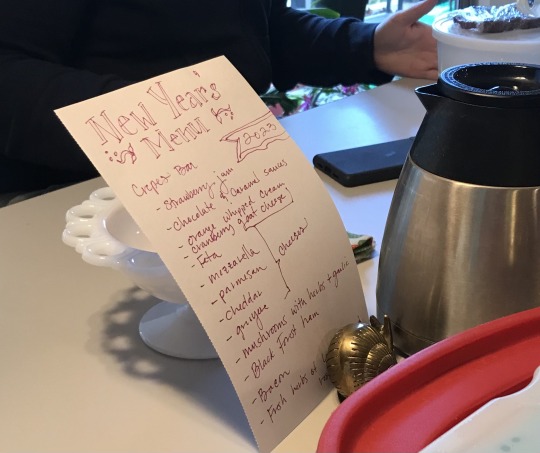 New Year's
Menu
2023
Crepes Bar
- Strawberry jam
- Chocolate & Caramel sauces
- orange whipped cream
- cranberry goat cheese
- Feta
- mozzarella
- parmesan
- cheddar
- gruyere
cheeses!
- mushrooms with herbs + garlic
- Black Forest ham
- Bacon
- Fresh herbs